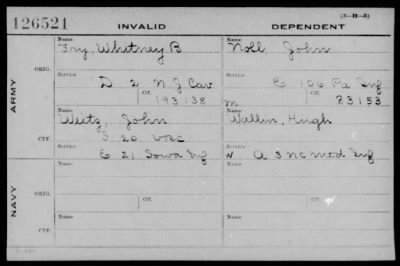 126521 INVALID DEPENDENT (3-H-3)
Name Name
Fry, Whitney B Noll, John
ORIG. Service Service
D 2 N J Cav E 106 Pa Inf
Ctf. Ctf.
193138 M 83153
ARMY
Name Name
Weitz, John Wallin, Hugh
CTF. Service
20 VRC
E 21 Iowa Inf N A 3 NC Mtd Inf
NAVY
Name Name
ORIG. Service Service
Ctf. Ctf.
Name Name
CTF. Service Service